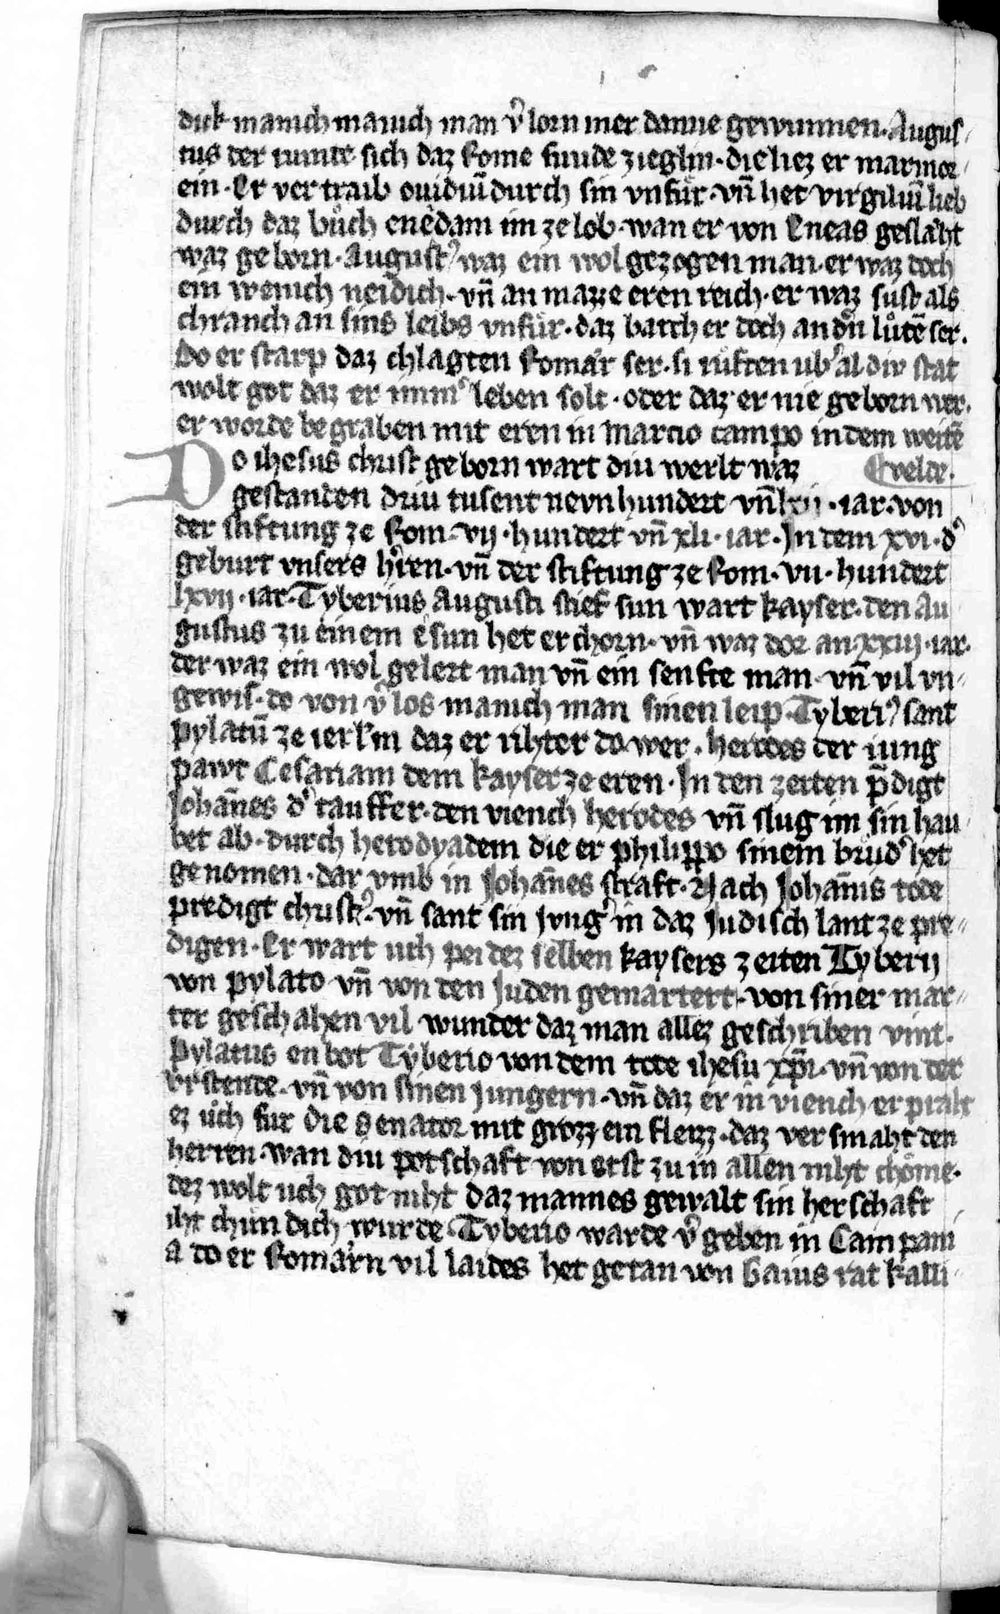 dick manich manich man v̾lorn mer danne gewinnen. Augus-
tus der rumte sich daz Rome funde zieglin. die liez er marmor-
ein. Er vertraib ouidiū durch sin vnfůr. vn̄ het virgiliū lieb
durch daz bůch enedam im ze lob. wan er von Eneas geslaht
waz geborn. August9 waz ein wolgezogen man. er waz doch
ein wenich neidich. vn̄ an mazze eren reich. er waz sust als
chranch an sins leibs vnfůr. daz barch er doch an den lůtē ser.
Do er starp daz chlagten Romar ser. si růften vb̾al div stat
wolt got daz er imm̾ leben solt. oder daz er nie geborn wer.
er worde begraben mit eren in Marcio campo in dem weitē
Do ihesus christ geborn wart diu werlt waz velde.
gestanden driu tusent nevn hundert vn̄ lxii. iar. von
der stiftung ze Rom. vij. hundert vn̄ xli. iar. In dem xvi. d̾
geburt vnsers h̾ren. vn̄ der stiftung ze Rom. vii. hundert
lxvij. iar. Tyberius Augusti stief sun wart kayser. den Au
gustus zu einem e sun het erchorn. vn̄ waz dor an xxiij. iar.
der waz ein wol gelert man vn̄ ein senfte man. vn̄ vil vn-
gewis. do von v̾los manich man sinen leip. Tyberi9 sant
pylatū ze ierlm daz er rihter do wer. herodes der iung
pawt Cesariam dem kayser ze eren. In den zeiten p̄digt
Johānes d̾ tauffer. den viench herodes vn̄ slug im sin hau
bet ab. durch herodyadem die er philippo sinem brud̾ het
genomen. dar vmb in Johānes straft. Nach Johānis tode
predigt christ9. vn̄ sant sin Jvng̾ in daz Judisch lant ze pre-
digen. Er wart uch pei dez selben kaysers zeiten Tyberij
von pylato vn̄ von den Juden gemartert. von siner mar-
ter geschahen vil wunder daz man allez geschriben vint.
Pylatus enbot Tyberio von dem tode ihesu xp̄i. vn̄ von der
vrstende. vn̄ von sinen Jungern. vn̄ daz er in viench er praht
ez uch fur die Senator mit grozz ein fleizz. daz versmaht den
herren. wan diu potschaft von erst zu in allen niht chōme.
dez wolt uch got niht daz mannes gewalt sin herschaft
iht chundich wurde. Tyberio warde v̾geben in Campani
a do er Romarn vil laides het getan von Gaius rat kalli-